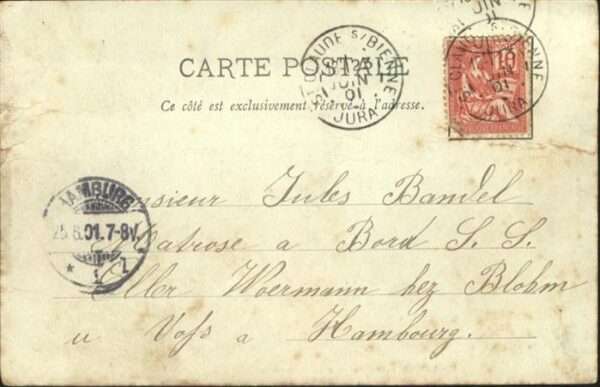 CARTE POSTALE
Ce côté est exclusivement réservé à l'adresse.
ST CLAUDE S/BIENNE
JUIN
01
JURA
10
HAMBURG
25.6.01.7-8V.
* 1 Z
Monsieur Jules Bandel
Matrose a Bord S. S.
Ella Woermann bez Blohm
u Voss a Hambourg.